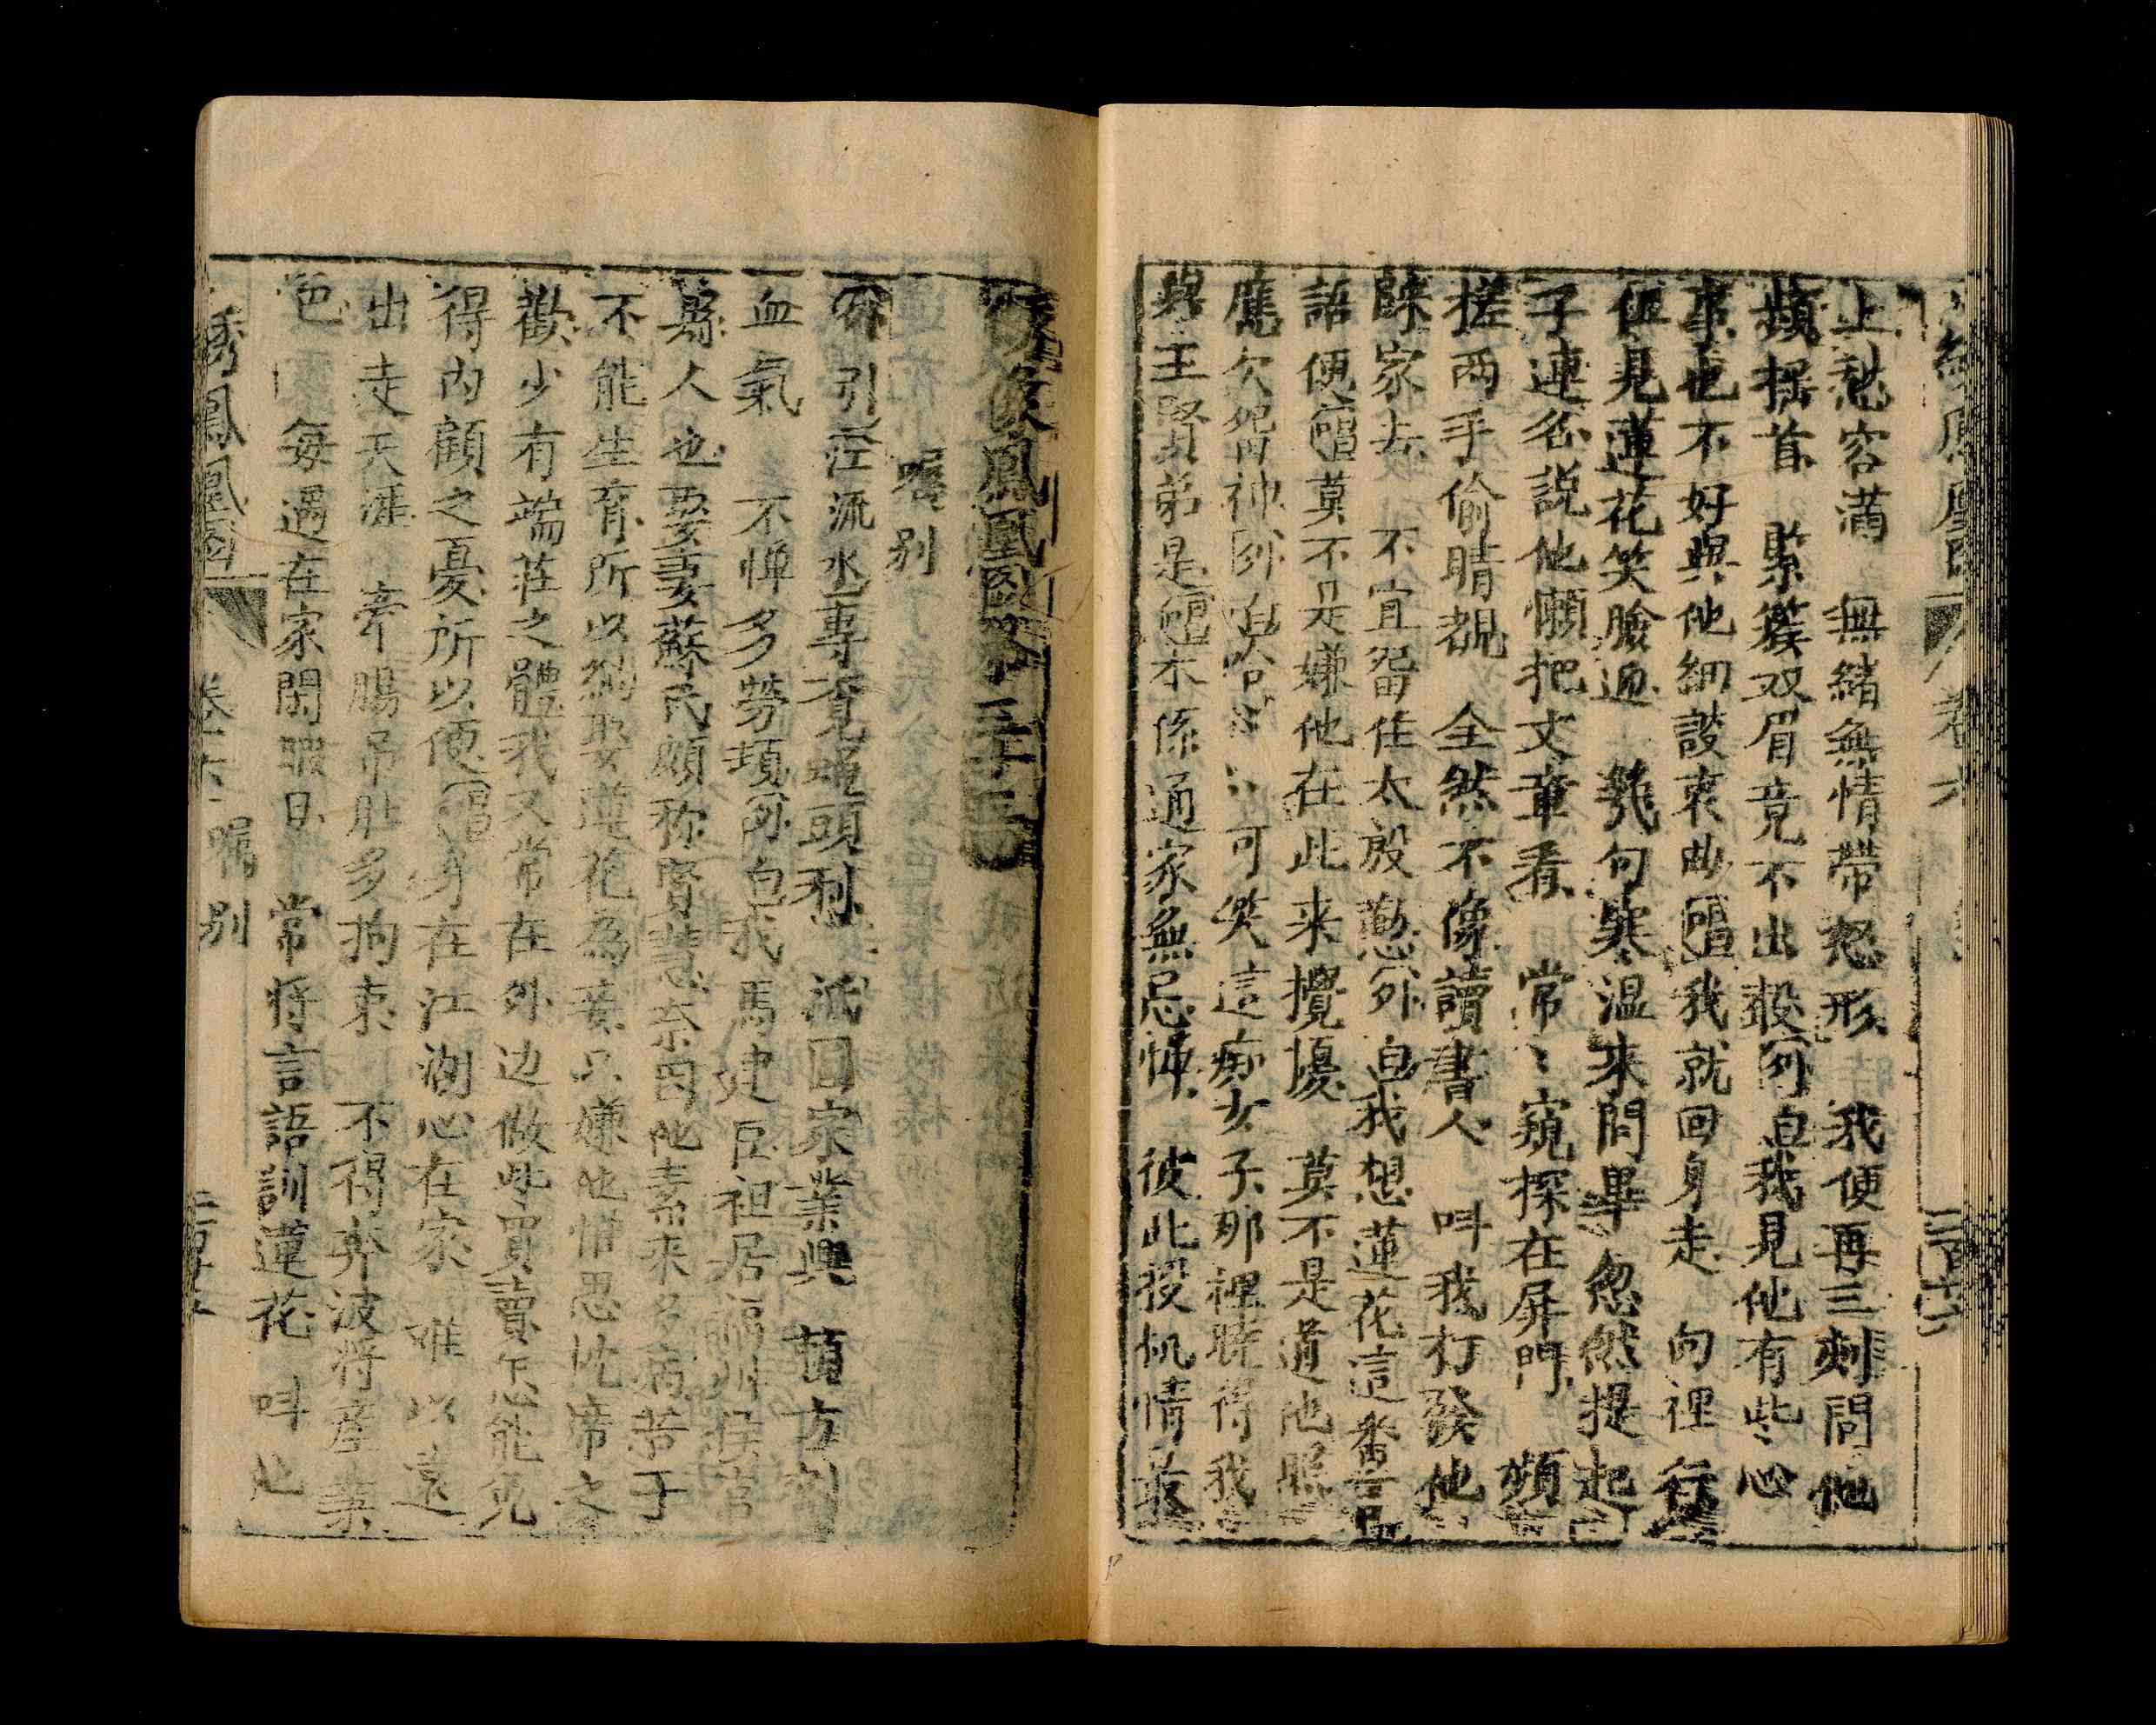 上愁容滿 無緒無情帶怒形 我便再三刺問他
頻搖首 緊簇双眉竟不出聲外白我見他有些心
事也不好與他細談衷曲唱我就回身走 向裡行
但見蓮花笑臉迎 幾句寒温来問畢 忽然提起
子連名説他懶把文章看 常〻窺探在屏門 頻
搓两手偷睛覷 全然不像讀書人 呌我打發他
歸家去 不宜留住太殷懃外白我想蓮花這番言
語便唱莫不是嫌他在此来攪擾 莫不是道他照
應欠留神外 可笑這痴女子那裡曉得我
與王賢弟是唱木係通家無忌惮 彼此投机情最
繡鳳凰 卷六
鳳凰
囑别
外引江流水專覓蠅頭利 派 家業興 頭方剛
血氣 不惮多勞頓外白我馬建臣祖居福州侯官
縣人也娶妻蘇氏頗称賢慧奈因他素来多病苦于
不能生育所以納娶蓮花為妾只嫌他惜恩忱席之
歡少有端莊之體我又常在外边做些買賣怎能免
得内顧之憂所以便唱身在江湖心在家 难以遠
出走天涯 牽腸吊肚多拘束 不得奔波将産業
色 每遇在家閒暇日 常将言語訓蓮花 呌他
綉鳳凰圖 卷六 囑别